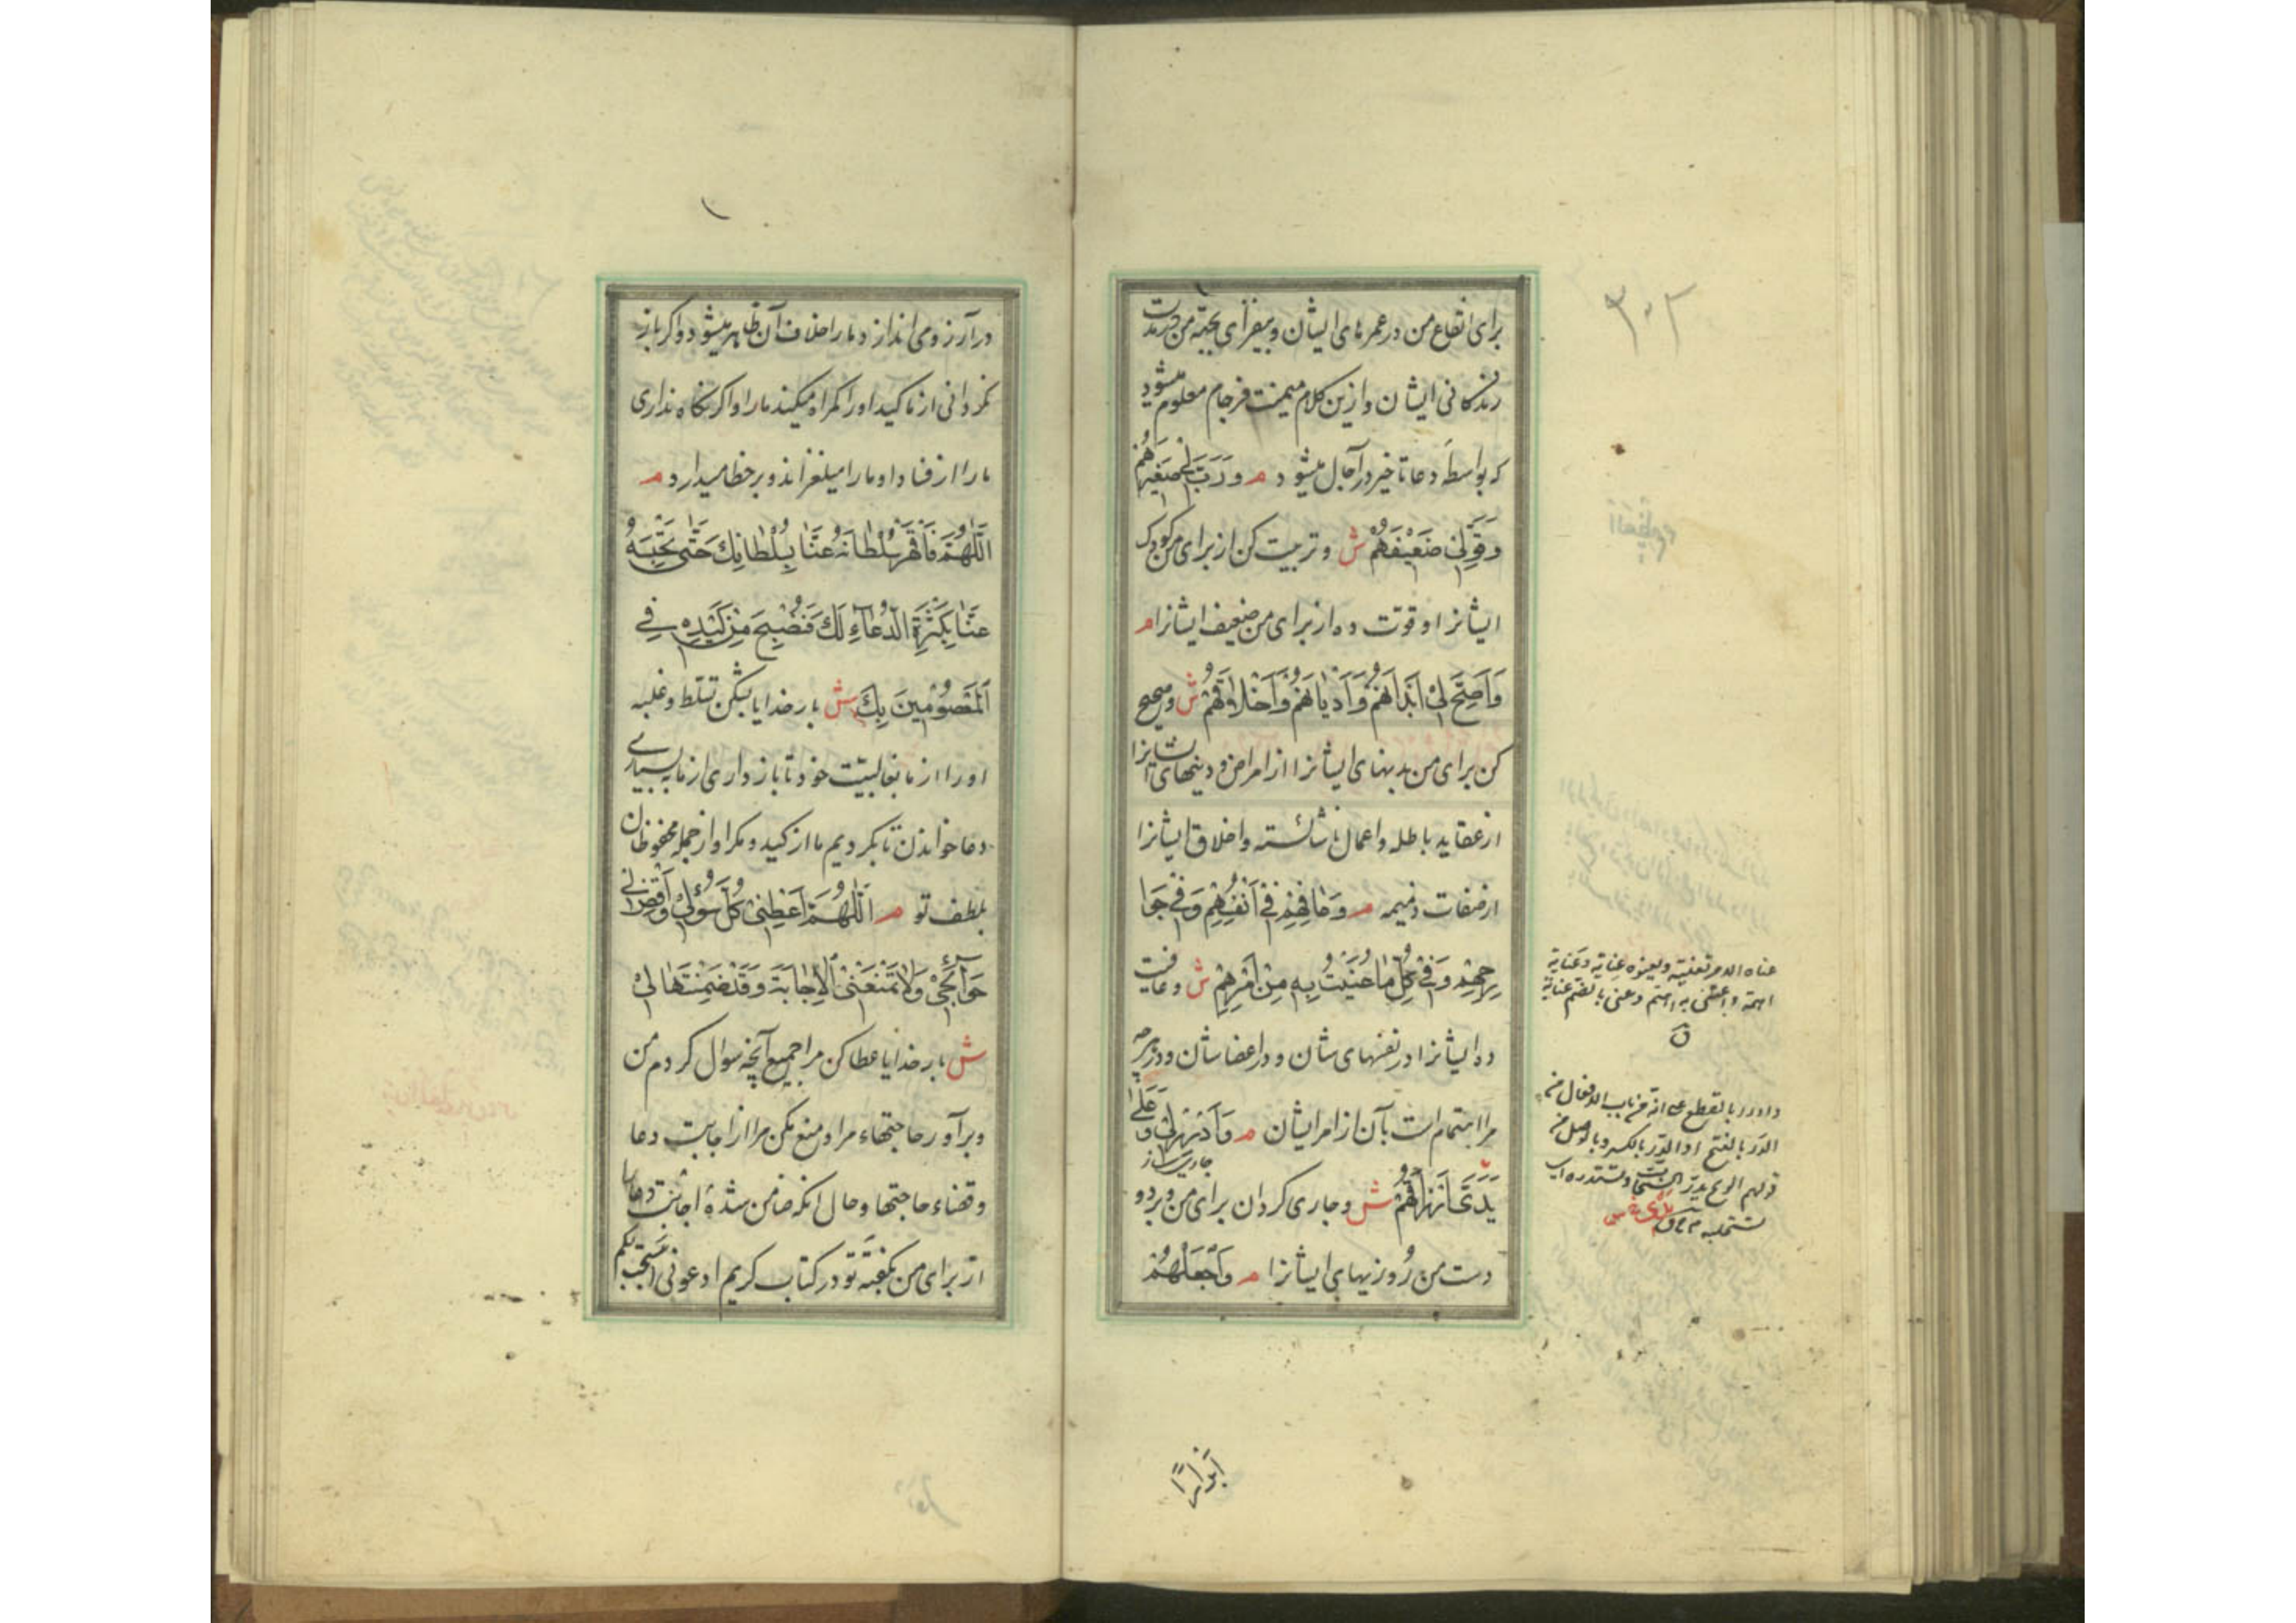 ۳۰۲
برای انتفاع من در عمرهای ایشان و بیفزای بجهة من در مدت
زندکانی ایشان و ازین کلام میمنت فرجام معلوم میشود
که بواسطه دعا تاخیر در آجال میشود م وَرَبِّ لِی صَغِیرَهُمْ
وَقَوِّلِی ضَعِیفَهُمْ ش و تربیت کن از برای من کودک
ایشانرا و قوّت ده از برای من ضعیف ایشانرا م
وَاَصِحَّ لِی اَبْدَانَهُمْ وَاَدْیَانَهُمْ وَاَخْلَاقَهُمْ ش و صحیح
کن برای من بدنهای ایشانرا از امراض و دینهای ایشانرا
از عقاید باطله و اعمال ناشائسته و اخلاق ایشانرا
از صفات ذمیمه م وَعَافِهِمْ فِی اَنْفُسِهِمْ وَفِی جَوَا
رِحِهِمْ وَفِی کُلِّ مَا عُنِیتُ بِهِ مِنْ اَمْرِهِمْ ش و عافیت
ده ایشانرا در نفسهای شان و در اعضا شان و در هرچه
مرا اهتمام است بآن از امر ایشان م وَاَدْرِرْ لِی وَعَلَی
یَدَیَّ اَرْزَاقَهُمْ ش و جاری کردان برای من و بر دو
جاری ساز
دست من روزیهای ایشانرا م وَاجْعَلْهُمْ
عناه الامر تعنیه و یعنوه عنایة و عنایة
اهمه و اعتنی به اهتم و عنی بالضم عنایة
ق
وادرر بالقطع علی انه من باب الافعال من
الدر بالفتح او الدِّر بالکسر و بالوصل من
قولهم الریح تدرّ السحاب و تستدره ای
تستحلبه
اَبْرَارًا
در آرزو می اندازد ما را خلاف آن ظاهر میشود و اکر باز
نکردانی از ما کید او را کمراه میکند ما را و اکر نکاه نداری
ما را از فساد او ما را میلغزاند و بر خطا میدارد م
اَللّٰهُمَّ فَاقْهَرْ سُلْطَانَهُ عَنَّا بِسُلْطَانِكَ حَتّٰی تَحْبِسَهُ
عَنَّا بِکَثْرَةِ الدُّعَآءِ لَكَ فَنُصْبِحَ مِنْ کَیْدِهِ فِی
الْمَعْصُومِینَ بِكَ ش بار خدایا بشکن تسلّط و غلبه
او را از ما بغالبیّت خود تا باز داری از ما به بسیاری
دعا خواندن تا بکردیم ما از کید و مکر او از جمله محفوظان
بلطف تو م اَللّٰهُمَّ اَعْطِنِی کُلَّ سُؤْلِی وَاقْضِ لِی
حَوَآئِجِی وَلَا تَمْنَعْنِی الْاِجَابَةَ وَقَدْ ضَمِنْتَهَا لِی
ش بار خدایا عطا کن مرا جمیع آنچه سوال کردم من
و برآور حاجتهاء مرا و منع مکن مرا از اجابت دعا
و قضاء حاجتها و حال انکه ضامن شدهٔ اجابت دعا را
از برای من بکفتهٔ تو در کتاب کریم ادعونی استجب لکم